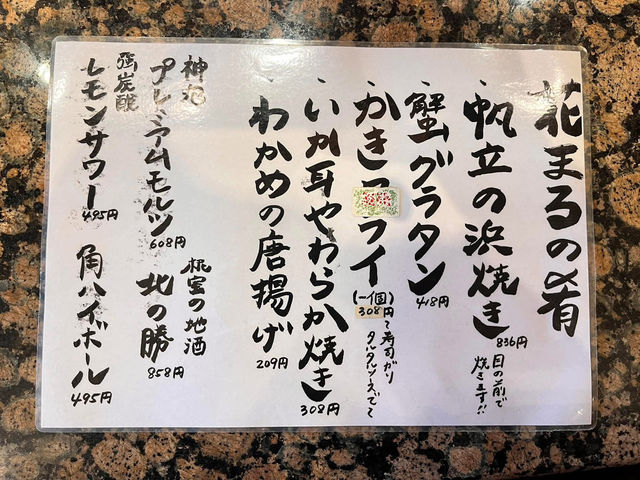 花まるの肴
・帆立の浜焼き 836円
目の前で
焼きます!!
・蟹グラタン 418円
・かきフライ (一個) 308円
寿司ガリ
タルタルソースで
・いか耳やわらか焼き 308円
・わかめの唐揚げ 209円
神泡
プレミアムモルツ 608円
根室の地酒
北の勝 858円
強炭酸
レモンサワー 495円
角ハイボール 495円